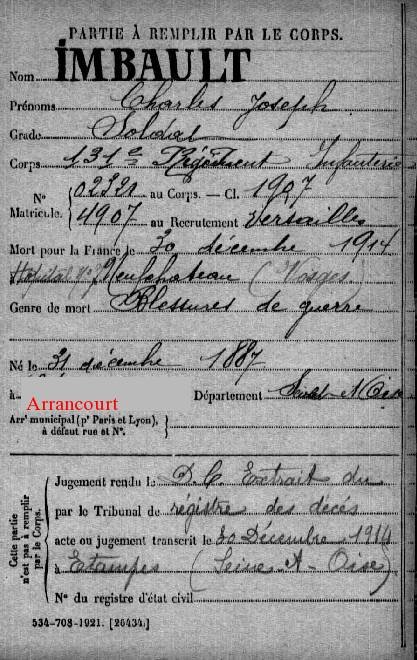 PARTIE À REMPLIR PAR LE CORPS.
Nom IMBAULT
Prénoms Charles Joseph
Grade Soldat
Corps 131e Régiment Infanterie
N° Matricule. { 02321 au Corps. — Cl. 1907
4907 au Recrutement Versailles
Mort pour la France le 30 décembre 1914
à Hôpital Neufchateau (Vosges)
Genre de mort Blessures de guerre
Né le 31 décembre 1887
à Arrancourt Département Seine-et-Oise
Arrt municipal (pr Paris et Lyon), à défaut rue et N°. }
Cette partie n'est pas à remplir par le Corps.
Jugement rendu le D.C. Extrait du
par le Tribunal de régistre des décés
acte ou jugement transcrit le 30 Décembre 1914
à Etampes (Seine-&-Oise)
N° du registre d'état civil
534-708-1921. [26434.]